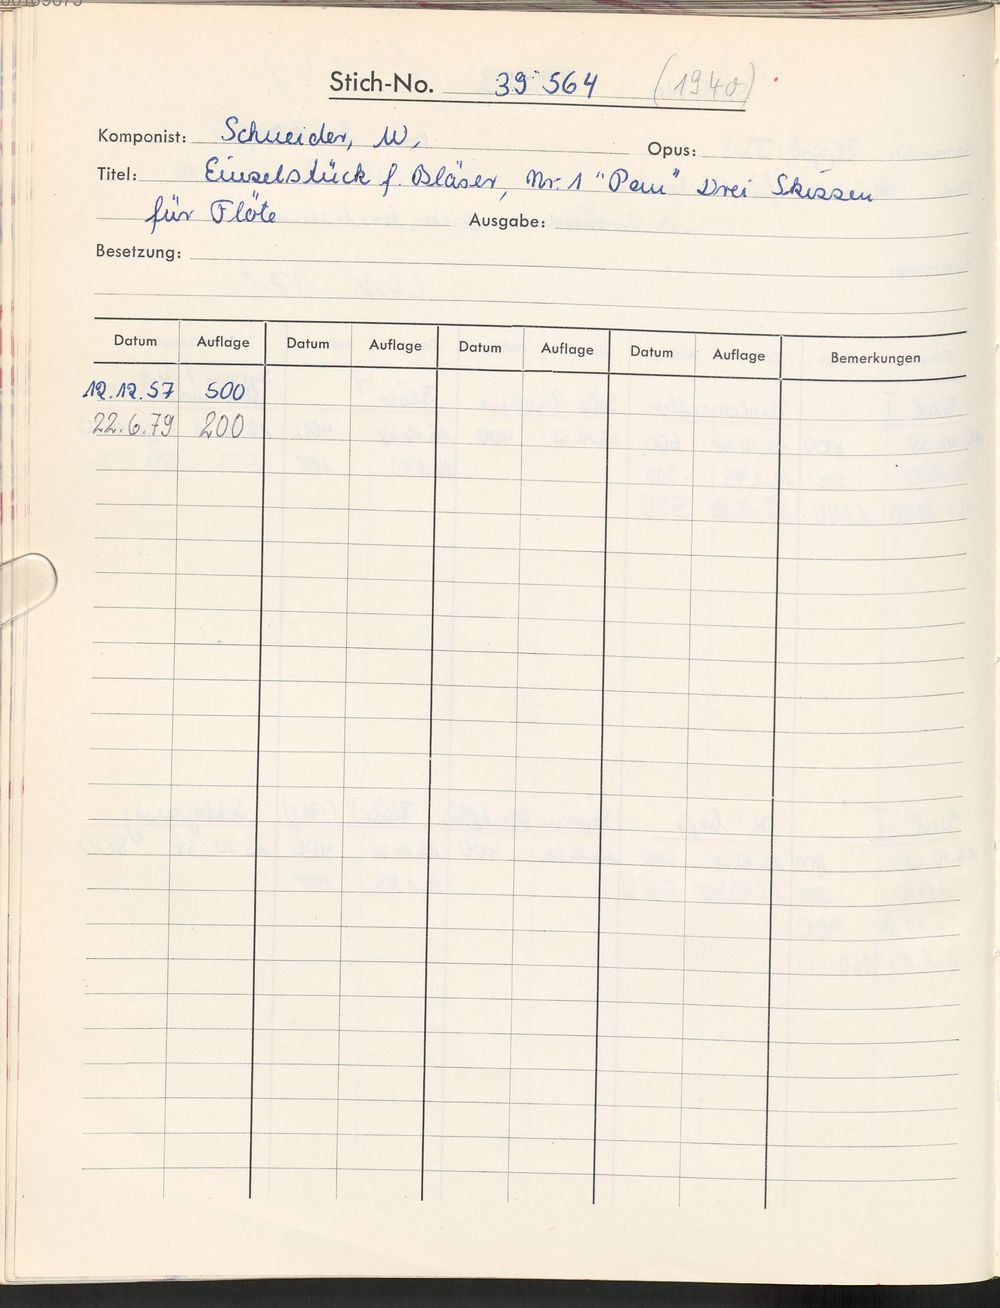 Stich-No. 39564 (1940)
Komponist: Schneider, W.
Opus:
Titel: Einzelstück f. Bläser, Nr. 1 "Pan" Drei Skizzen
für Flöte Ausgabe:
Besetzung:
Datum Auflage Datum Auflage Datum Auflage Datum Auflage Bemerkungen
12.12.57 500
22.6.79 200